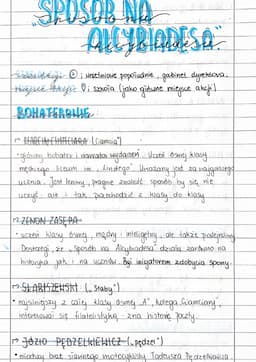 SPOSÓB NA
ALCYBIADESA
czas akcji: wrześniowe popołudnie, gabinet dyrektora.
miejsce akcji: szkoła (jako główne miejsce akcji)
BOHATEROWIE
(Ciamcia)
• główny bohater i narrator wydarzeń. Uczeń ósmej klasy
męskiego liceum im. Lindego. Uważany jest za najgorszego
ucznia. Jest leniwy, pragnie znaleźć sposób by się nie
uczyć ale i tak przechodzić z klasy do klasy
ZENON ZASĘPA
• uczeń klasy ósmej, mądry i inteligentny, ale także podejrzliwy
Dostrzegł, że „Sposób na Alcybiadesa" działa zarówno na
historyka jak i na uczniów. Był inicjatorem zdobycia spawy.
SŁABIŃSKI („Słaby")
• najsilniejszy z całej klasy ósmej „A", kolega Ciamciary,
interesował się filatelistyką, zna historię poczty.
JÓZIO PĘDZELKIEWICZ („Pędzel")
• młodszy brat sławnego motocyklisty Tadeusza Pędzelkiewicza